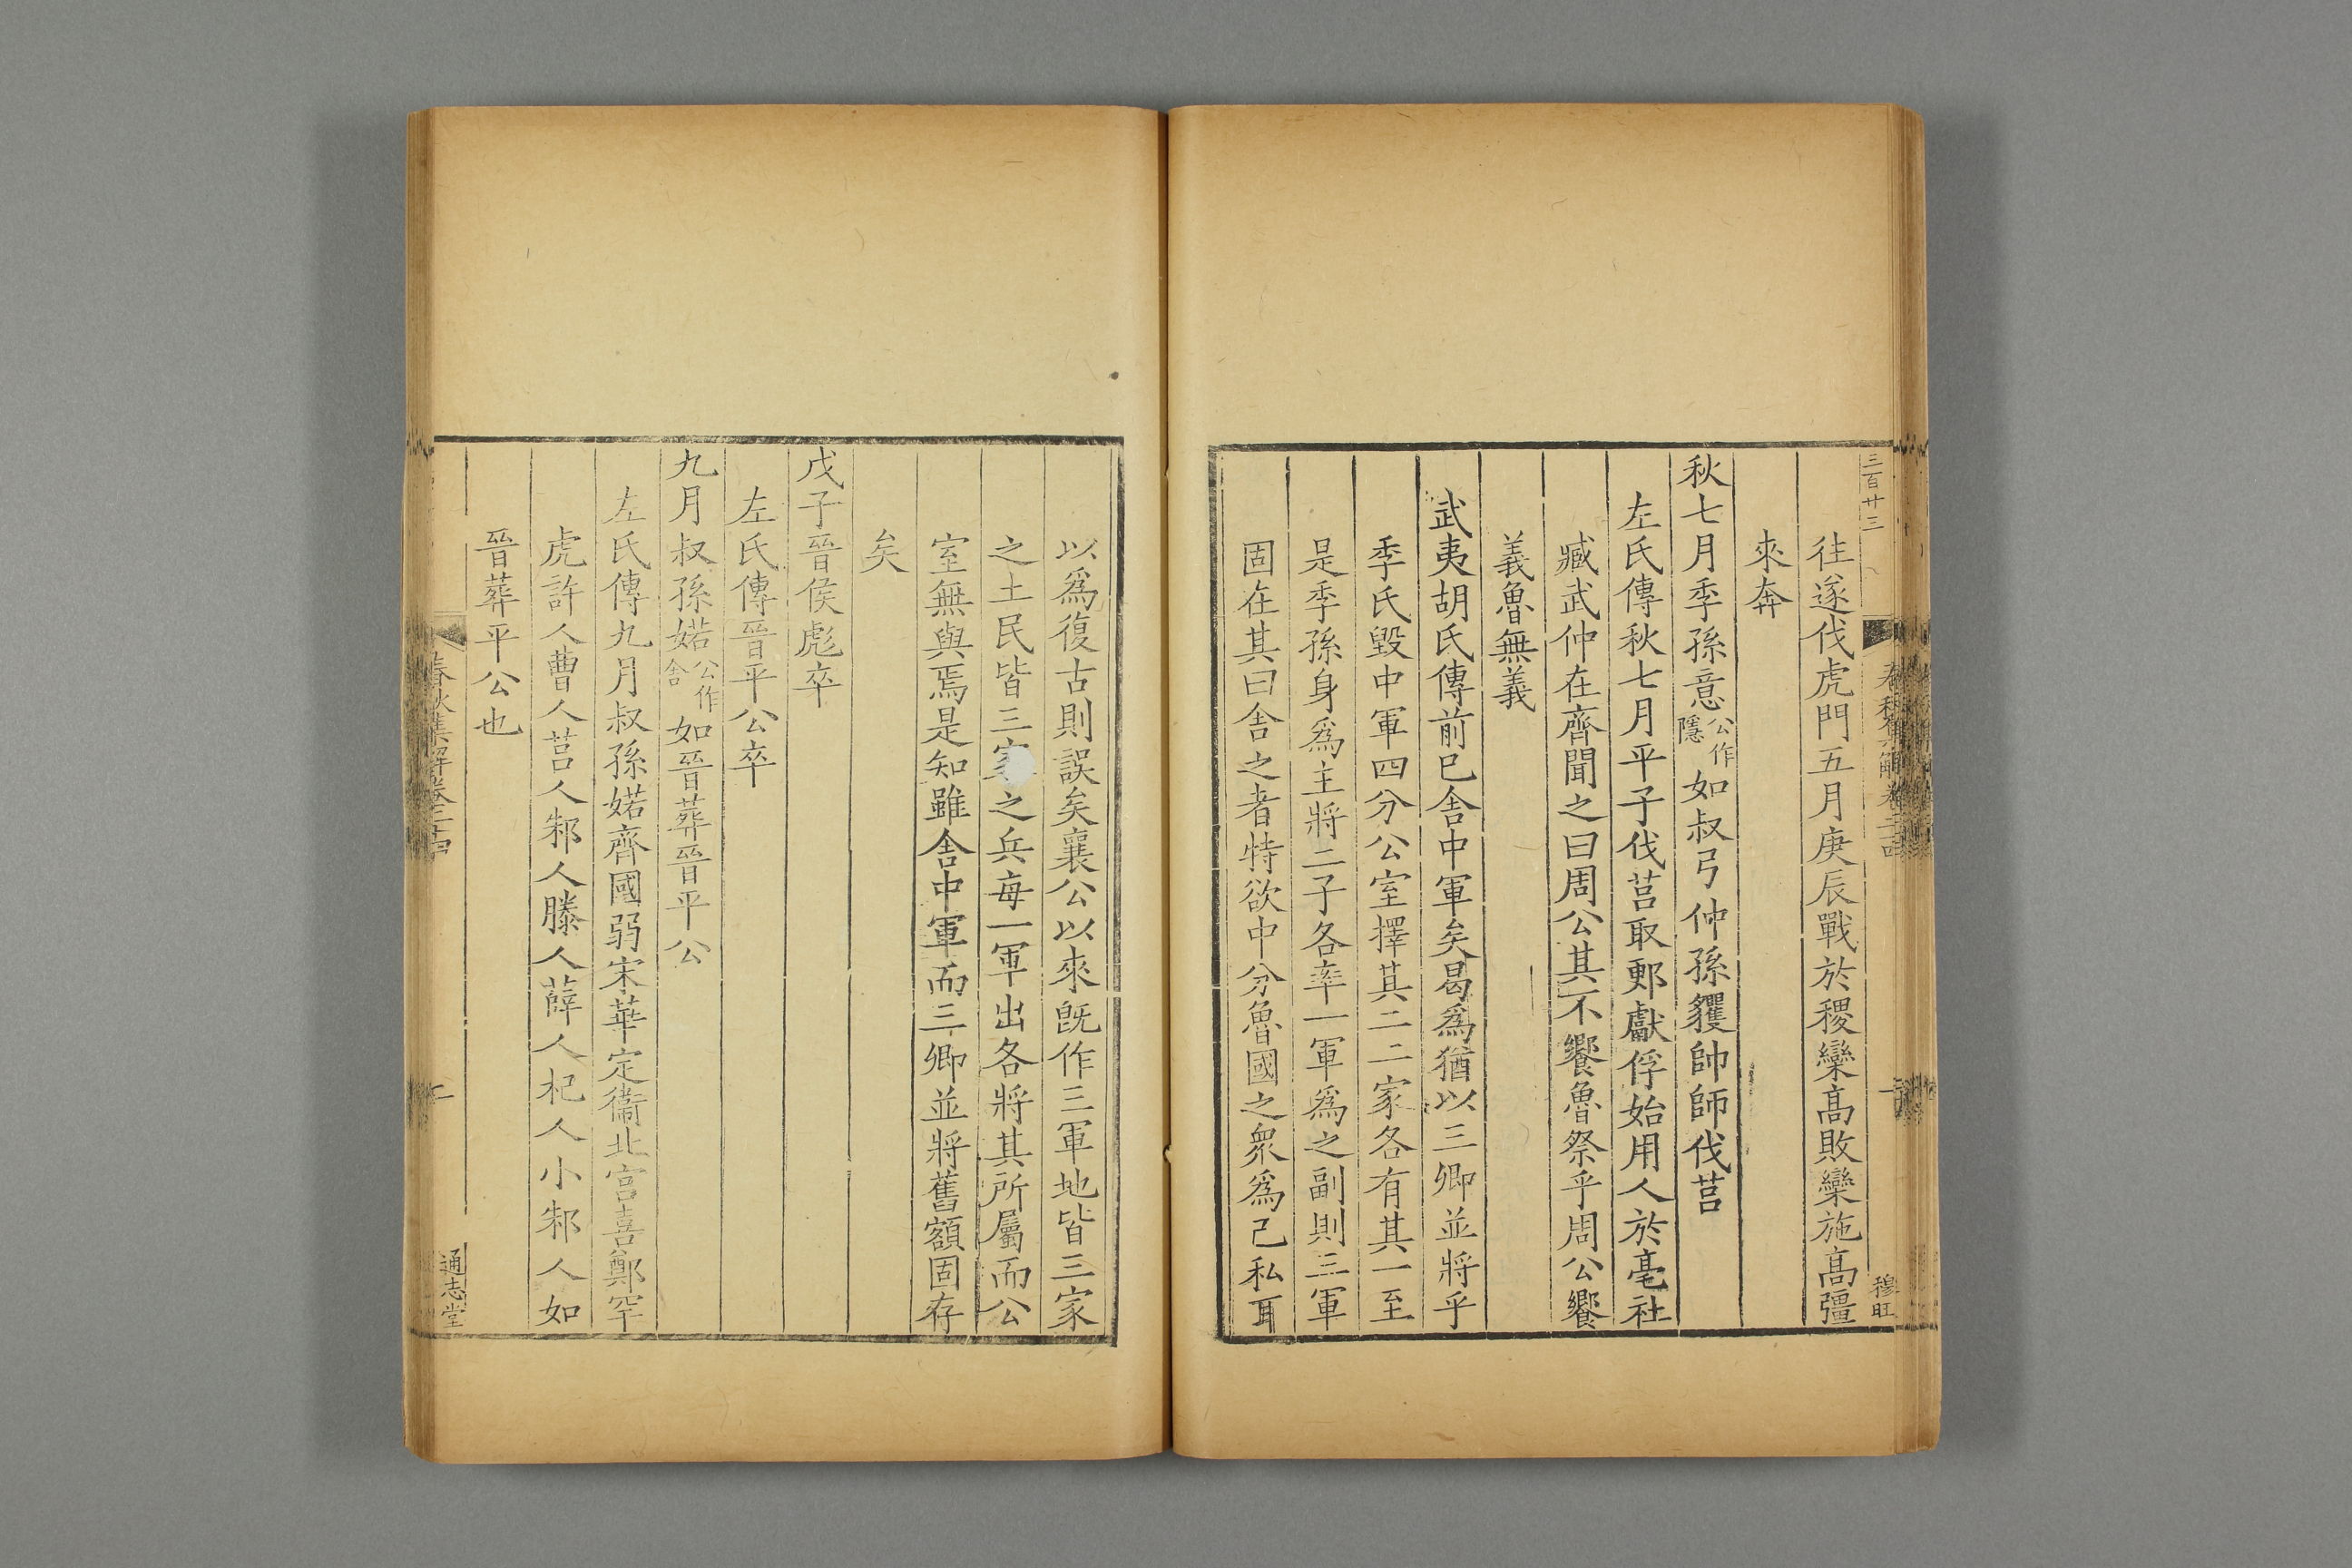 三百廿三
春秋集解卷二十四
穆旺
往遂伐虎門五月庚辰戰於稷欒高敗欒施高彊
來奔
秋七月季孫意公作隱如叔弓仲孫貜帥師伐莒
左氏傳秋七月平子伐莒取郠獻俘始用人於亳社
臧武仲在齊聞之曰周公其不饗魯祭乎周公饗
義魯無義
武夷胡氏傳前已舍中軍矣曷爲猶以三卿並將乎
季氏毀中軍四分公室擇其二二家各有其一至
是季孫身爲主將二子各率一軍爲之副則三軍
固在其曰舍之者特欲中分魯國之衆爲己私耳
以爲復古則誤矣襄公以來旣作三軍地皆三家
之土民皆三家之兵每一軍出各將其所屬而公
室無與焉是知雖舍中軍而三卿並將舊額固存
矣
戊子晉侯彪卒
左氏傳晉平公卒
九月叔孫婼公作舍如晉葬晉平公
左氏傳九月叔孫婼齊國弱宋華定衞北宫喜鄭罕
虎許人曹人莒人邾人滕人薛人杞人小邾人如
晉葬平公也
春秋集解卷二十四
通志堂